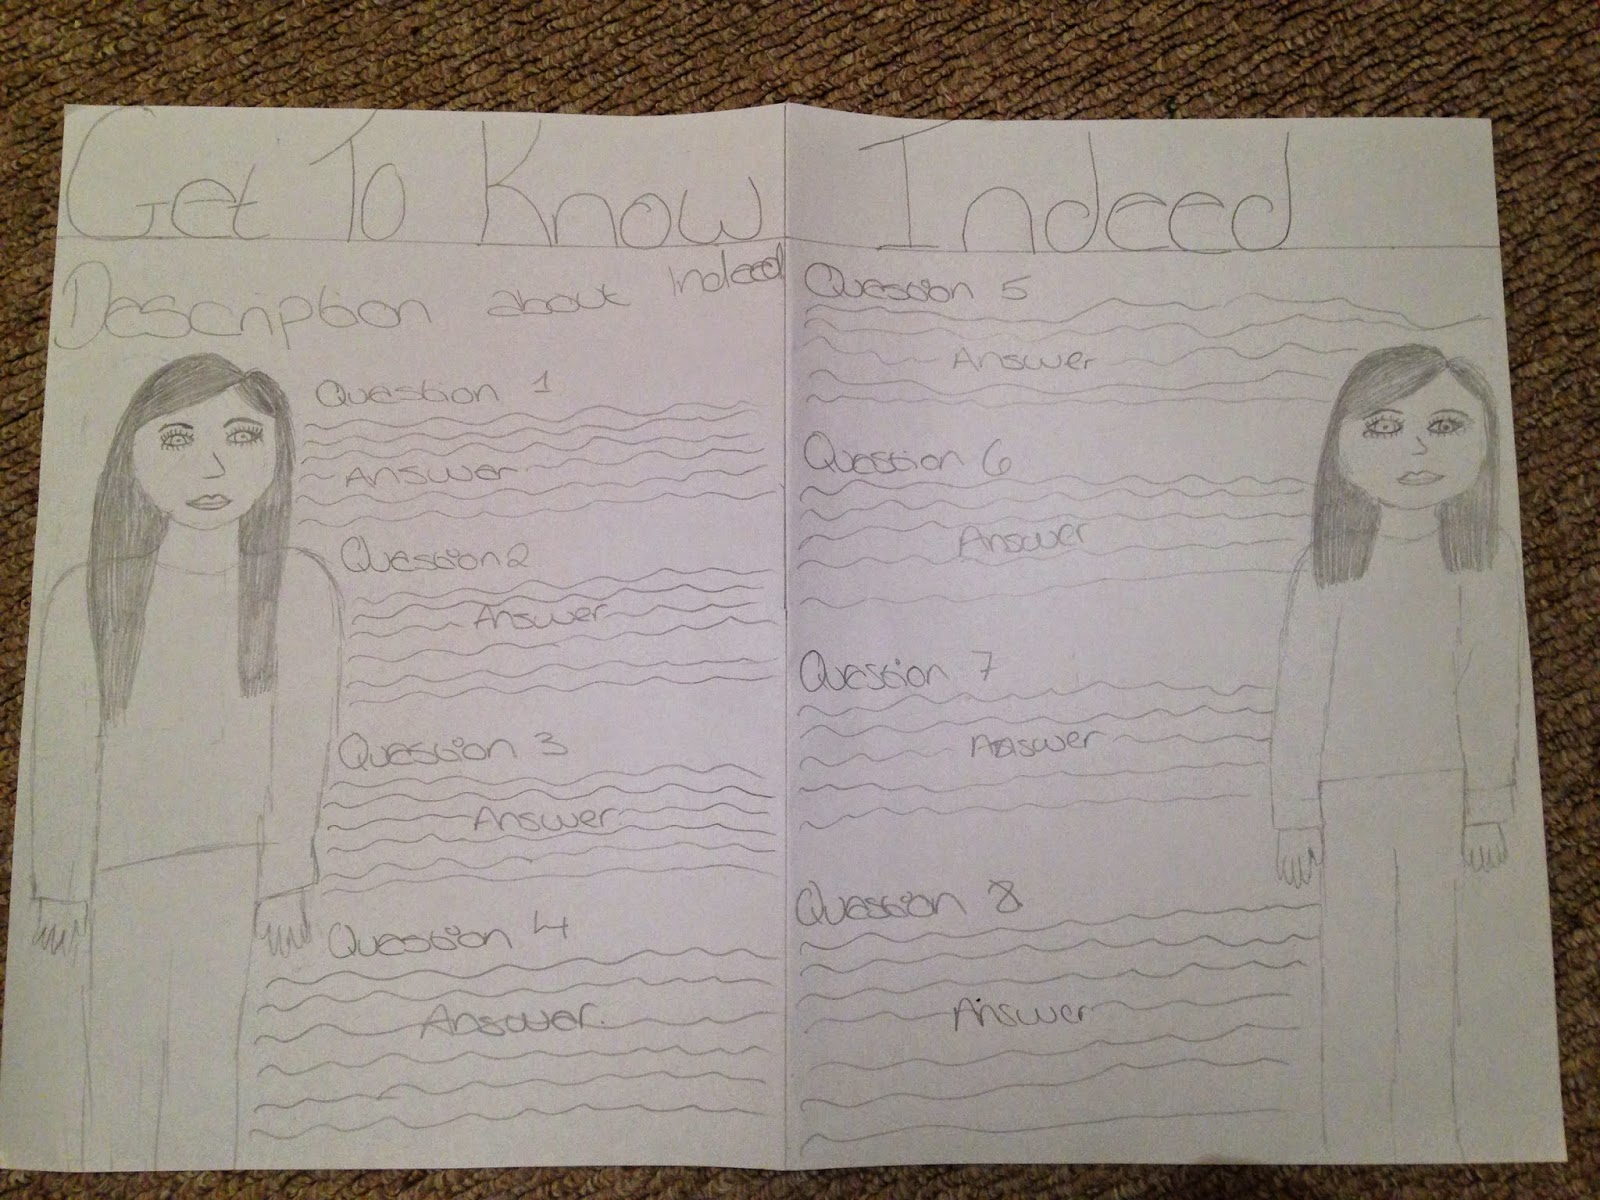 Get To Know Indeed
Description about Indeed
Question 1
Answer
Question 2
Answer
Question 3
Answer
Question 4
Answer.
Question 5
Answer
Question 6
Answer
Question 7
Answer
Question 8
Answer